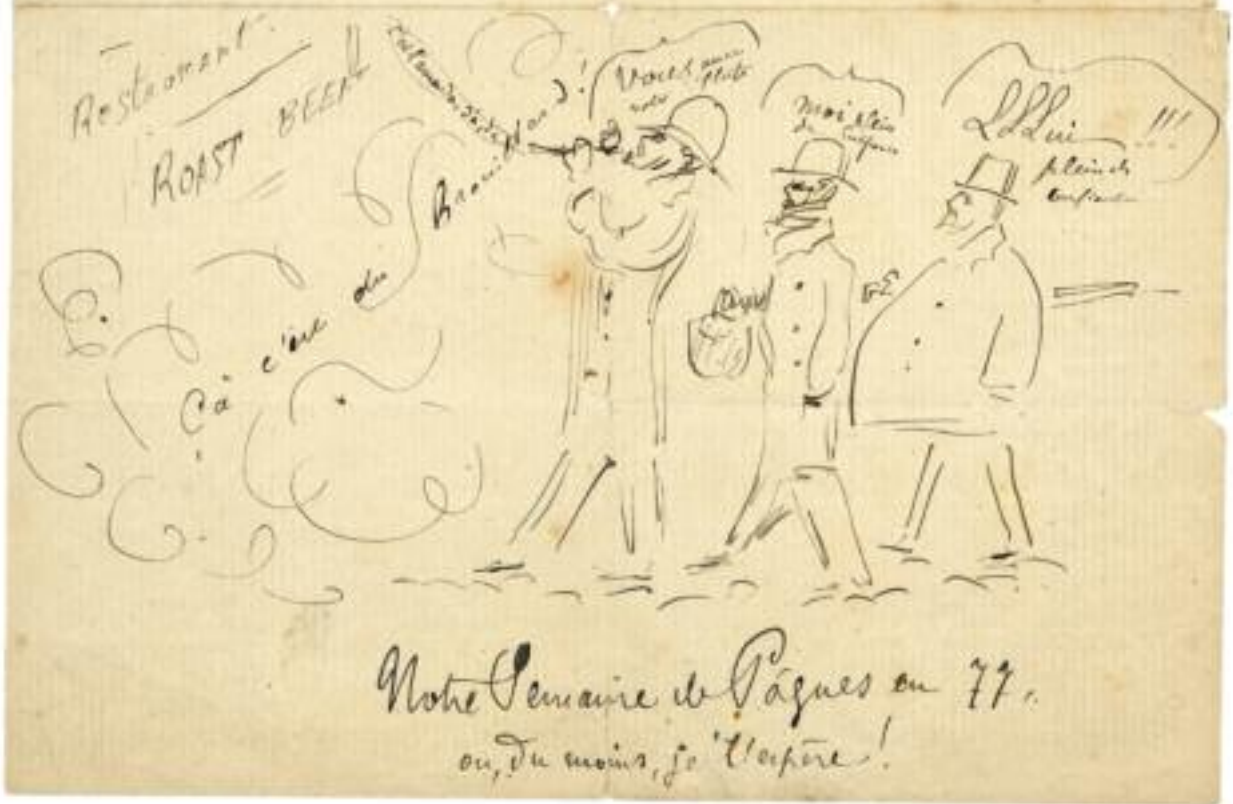 Restaurant.
ROAST BEEF
Çà c'est du Brouillard !
Vous avec
moi plein
de confiance
LLLui !!!
plein de
confiance
Notre Semaine de Pâques en 77.
ou, du moins, je l'espère !